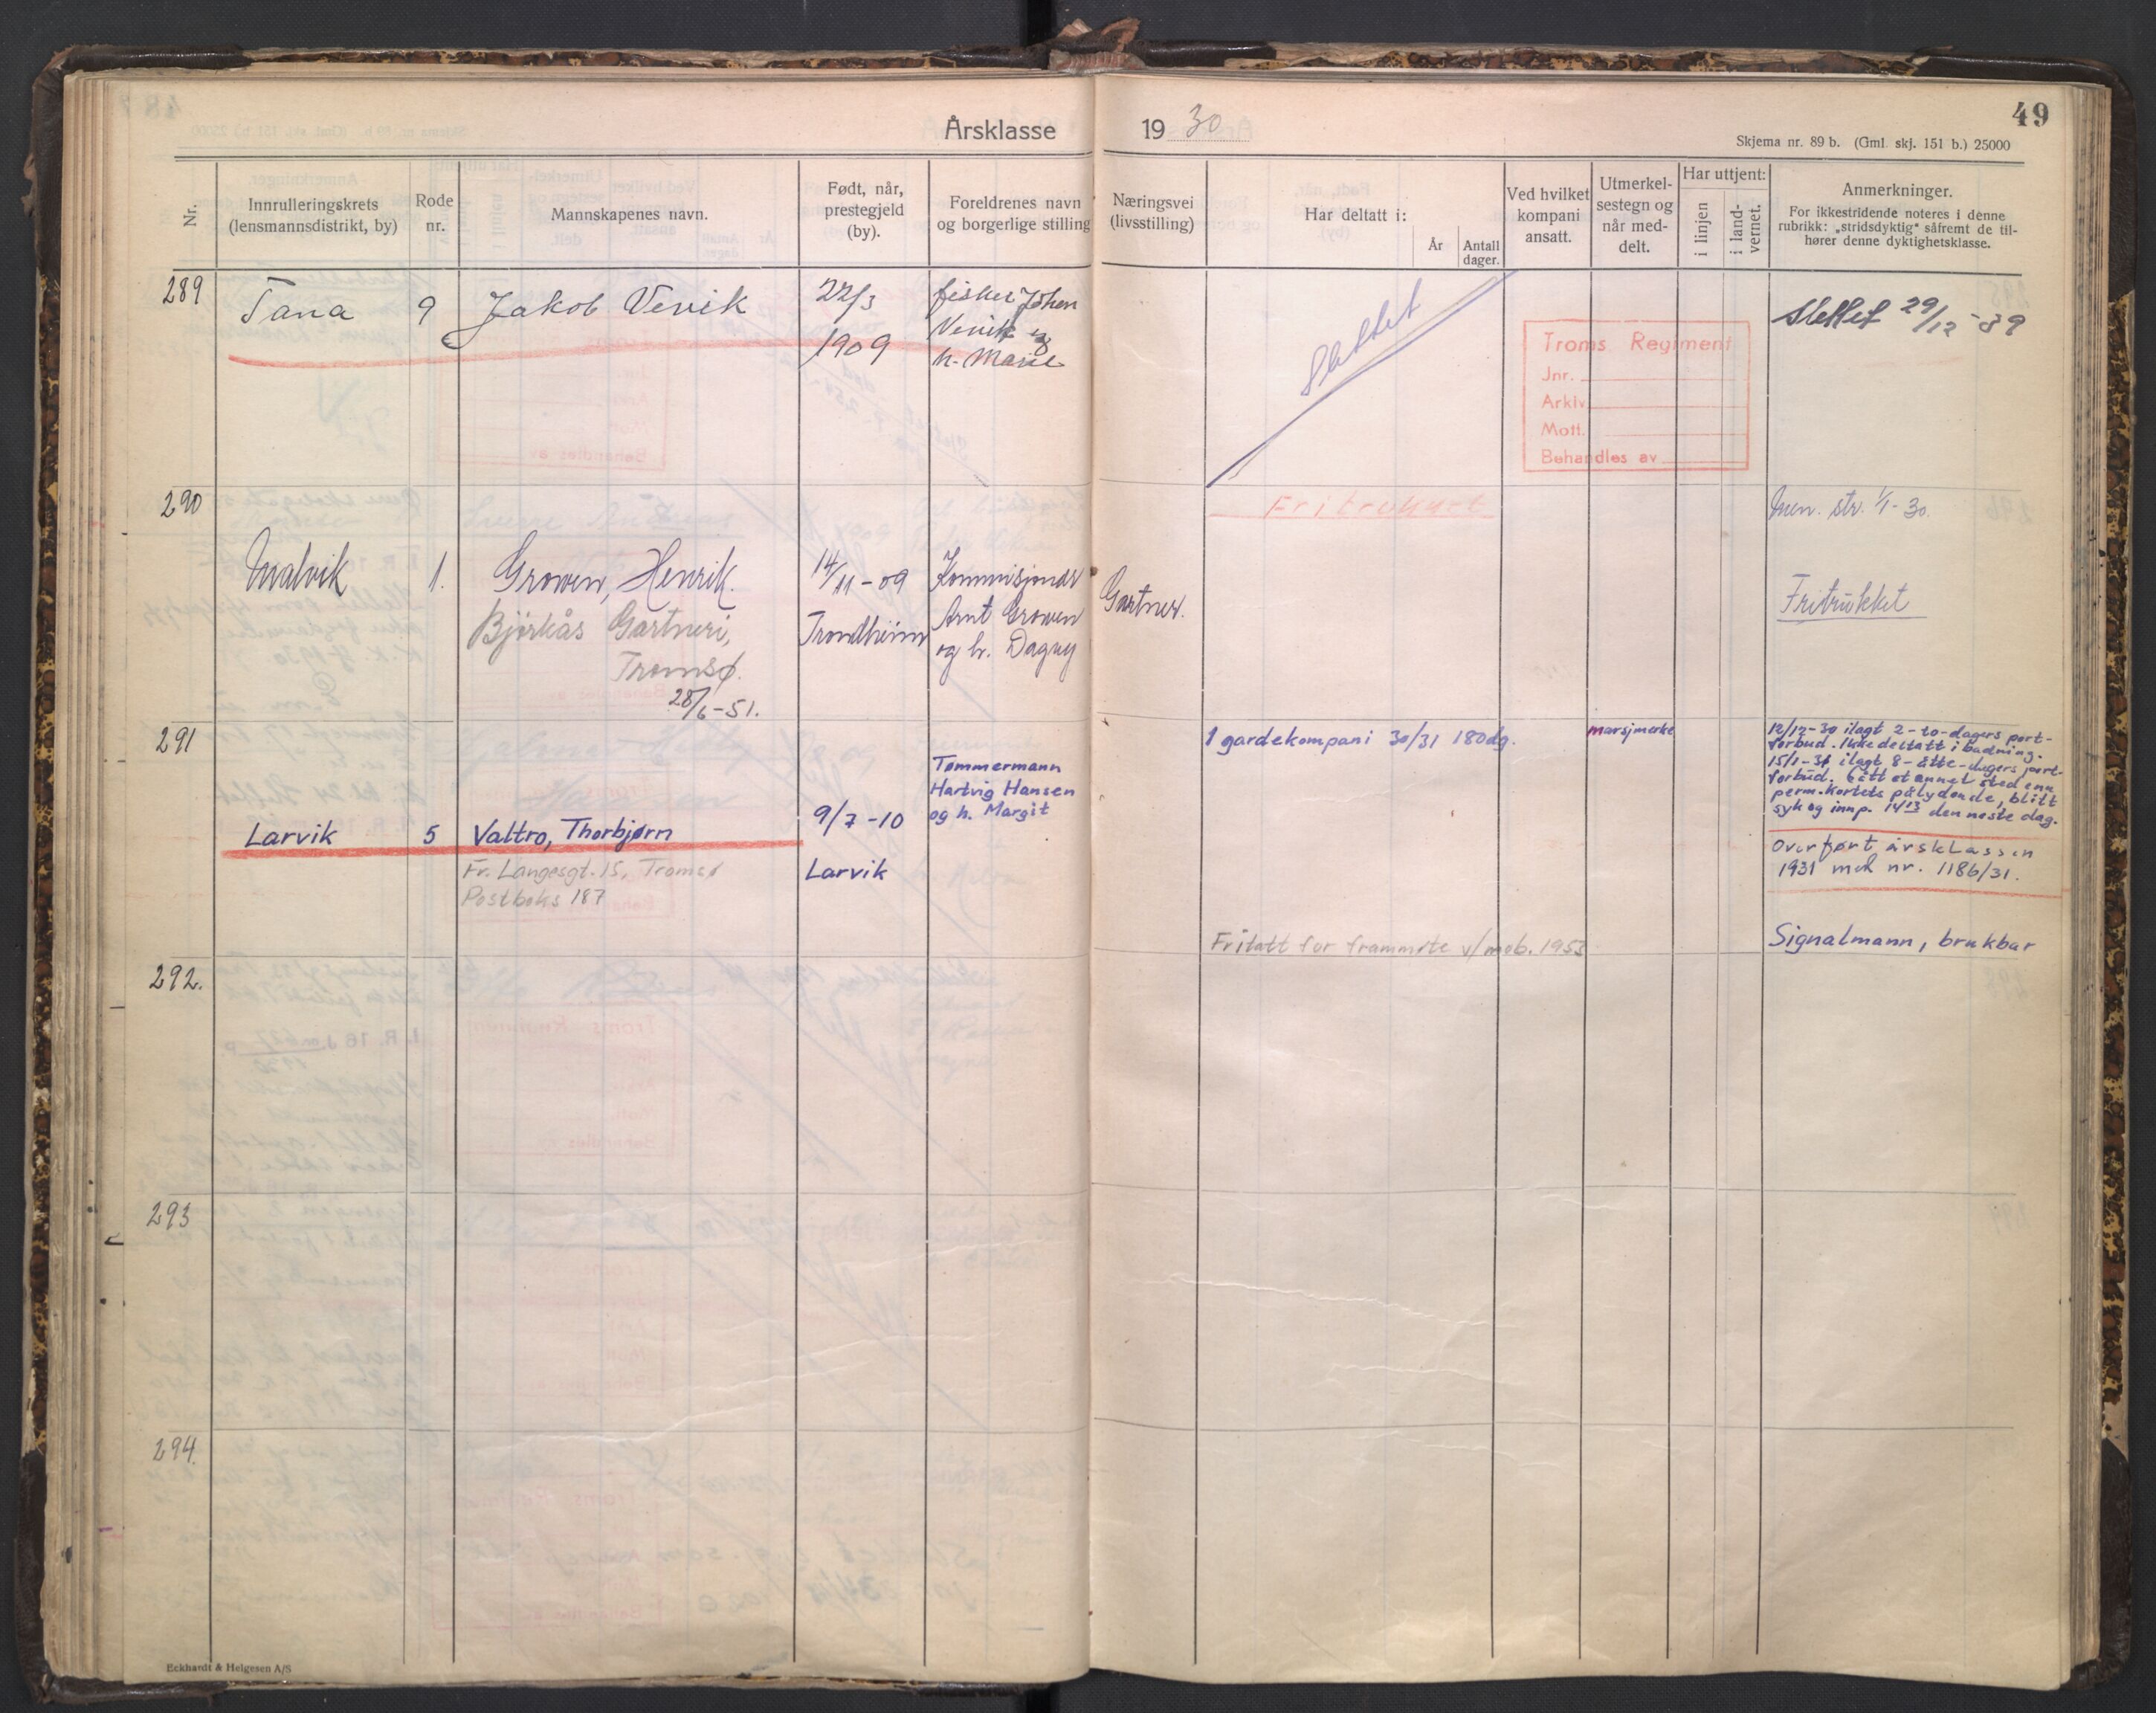 Årsklasse 1930
49
Skjema nr. 89 b. (Gml. skj. 151 b.) 25000
Nr.
Innrulleringskrets
(lensmannsdistrikt, by)
Rode
nr.
Mannskapenes navn.
Født, når,
prestegjeld
(by).
Foreldrenes navn
og borgerlige stilling
Næringsvei
(livsstilling)
Har deltatt i:
År
Antall
dager.
Ved hvilket
kompani
ansatt.
Utmerkel-
sestegn og
når med-
delt.
Har uttjent:
i linjen
i land-
vernet.
Anmerkninger.
For ikkestridende noteres i denne
rubrikk: „stridsdyktig“ såfremt de til-
hører denne dyktighetsklasse.
289
Tana
9
Jakob Vevik
22/3
1909
fisker Johan
Vevik og
h. Marie
Slettet
Troms Regiment
Jnr.
Arkiv
Mott.
Behandles av
Slettet 29/12-39
290
Malvik
1.
Growen, Henrik.
Bjørkås Gartneri,
Tromsø.
28/6-51.
14/11-09
Trondheim
Kommisjonær
Arnt Growen
og h. Dagny
Gartner.
Fritrukket
Men. str. 1/1-30.
Fritrukket
291
Larvik
5
Valtro, Thorbjørn
Fr. Langesgt. 15, Tromsø
Postboks 187
9/7-10
Larvik
Tømmermann
Hartvig Hansen
og h. Margit
1 gardekompani 30/31 180dg.
marsjmerke
12/12-30 ilagt 2-to-dagers port-
forbud. Ikke deltatt i badning.
15/1-31 ilagt 8-åtte-dagers port-
forbud. Gått et annet sted enn
perm.kortets pålydende, blitt
syk og innp. 14 13 den neste dag.
Overført årsklassen
1931 med nr. 1186/31.
Fritatt for frammøte v/mob. 1953
Signalmann, brukbar
292.
293
294.
Eckhardt & Helgesen A/S